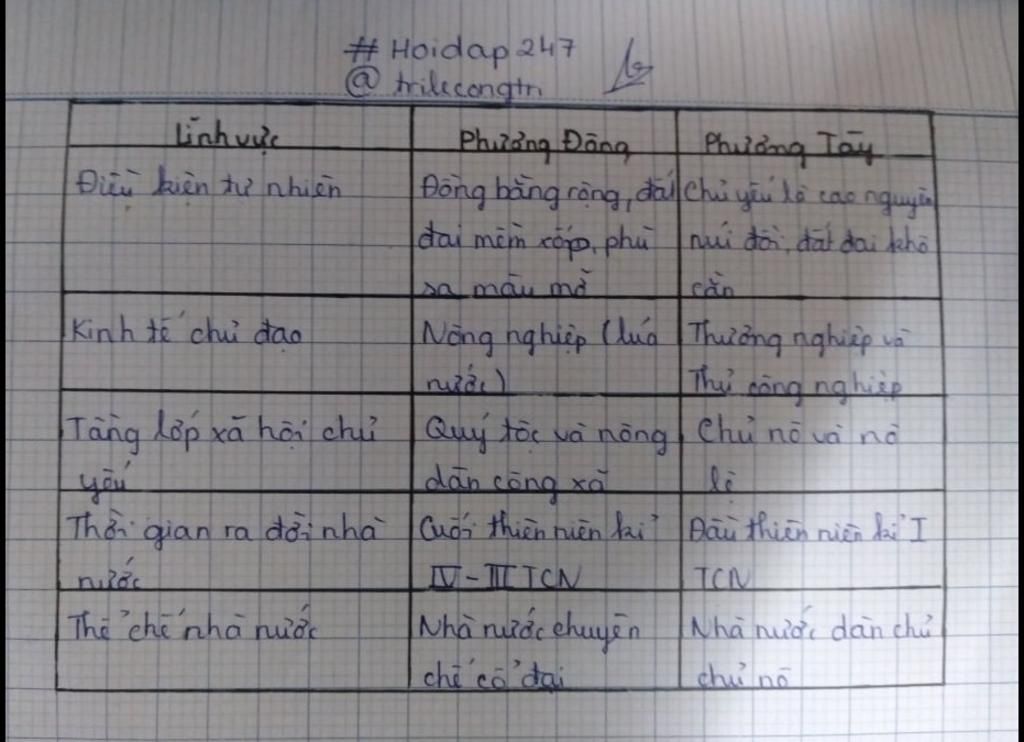 # Hoidap247
@ trilecongtn
Lĩnh vực Phương Đông Phương Tây
Điều kiện tự nhiên Đồng bằng rộng, đất Chủ yếu là cao nguyên
đai mềm xốp, phù núi đồi, đất đai khô
sa màu mỡ cằn
Kinh tế chủ đạo Nông nghiệp (lúa Thương nghiệp và
nước) Thủ công nghiệp
Tầng lớp xã hội chủ Quý tộc và nông Chủ nô và nô
yếu dân công xã lệ
Thời gian ra đời nhà Cuối thiên niên kỉ Đầu thiên niên kỉ I
nước IV - III TCN TCN
Thể chế nhà nước Nhà nước chuyên Nhà nước dân chủ
chế cổ đại chủ nô